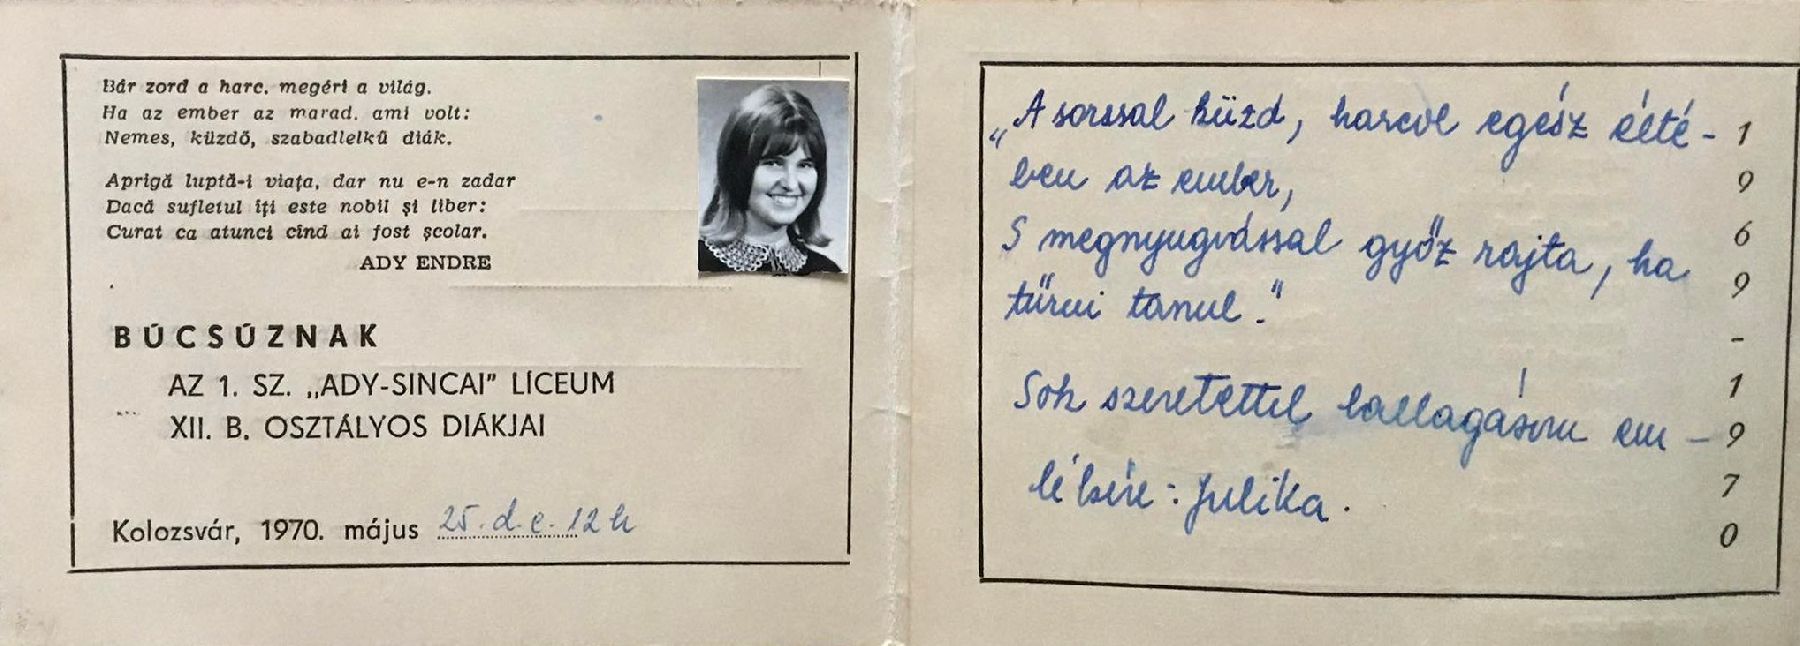 Bár zord a harc, megéri a világ.
Ha az ember az marad, ami volt:
Nemes, küzdő, szabadlelkű diák.
Aprigă luptă-i viața, dar nu e-n zadar
Dacă sufletul îți este nobil și liber:
Curat ca atunci cînd ai fost școlar.
ADY ENDRE
BÚCSÚZNAK
AZ 1. SZ. „ADY-SINCAI” LÍCEUM
XII. B. OSZTÁLYOS DIÁKJAI
Kolozsvár, 1970. május 25. d. e. 12 h
„A sorssal küzd, harcol egész élté-
ben az ember,
S megnyugvással győz rajta, ha
tűrni tanul.”
Sok szeretettel ballagásom em-
lékére: Julika.
1
9
6
9
-
1
9
7
0